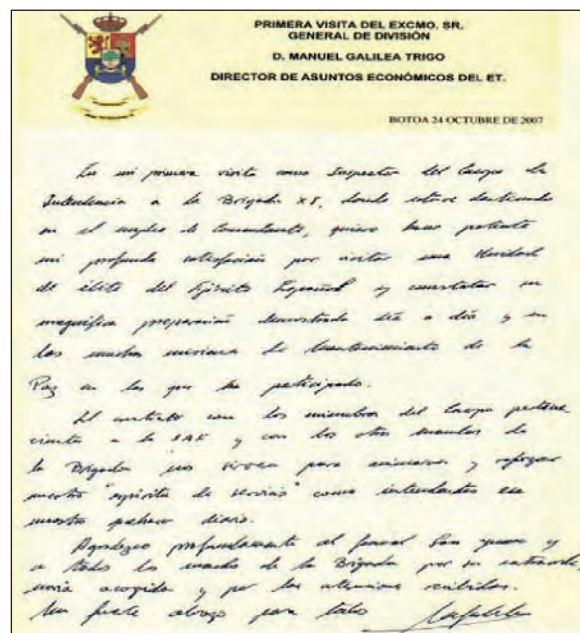 PRIMERA VISITA DEL EXCMO. SR.
GENERAL DE DIVISIÓN
D. MANUEL GALILEA TRIGO
DIRECTOR DE ASUNTOS ECONÓMICOS DEL ET.
BOTOA 24 OCTUBRE DE 2007
En mi primera visita como Inspector del Cuerpo de
Intendencia a la Brigada XI, donde estuve destinado
en el empleo de Comandante, quiero hacer patente
mi profunda satisfacción por visitar una Unidad
de élite del Ejército Español y constatar su
magnífica preparación demostrada día a día y en
las muchas misiones de Mantenimiento de la
Paz en las que ha participado.
El contacto con los miembros del Cuerpo pertene
cientes a la y con los otros mandos de
la Brigada nos sirven para animarnos y reforzar
nuestro "espíritu de servicio" como intendentes en
nuestro quehacer diario.
Agradezco profundamente al general y
a todos los mandos de la Brigada por su
acogida y por las atenciones recibidas.
Un fuerte abrazo para todos